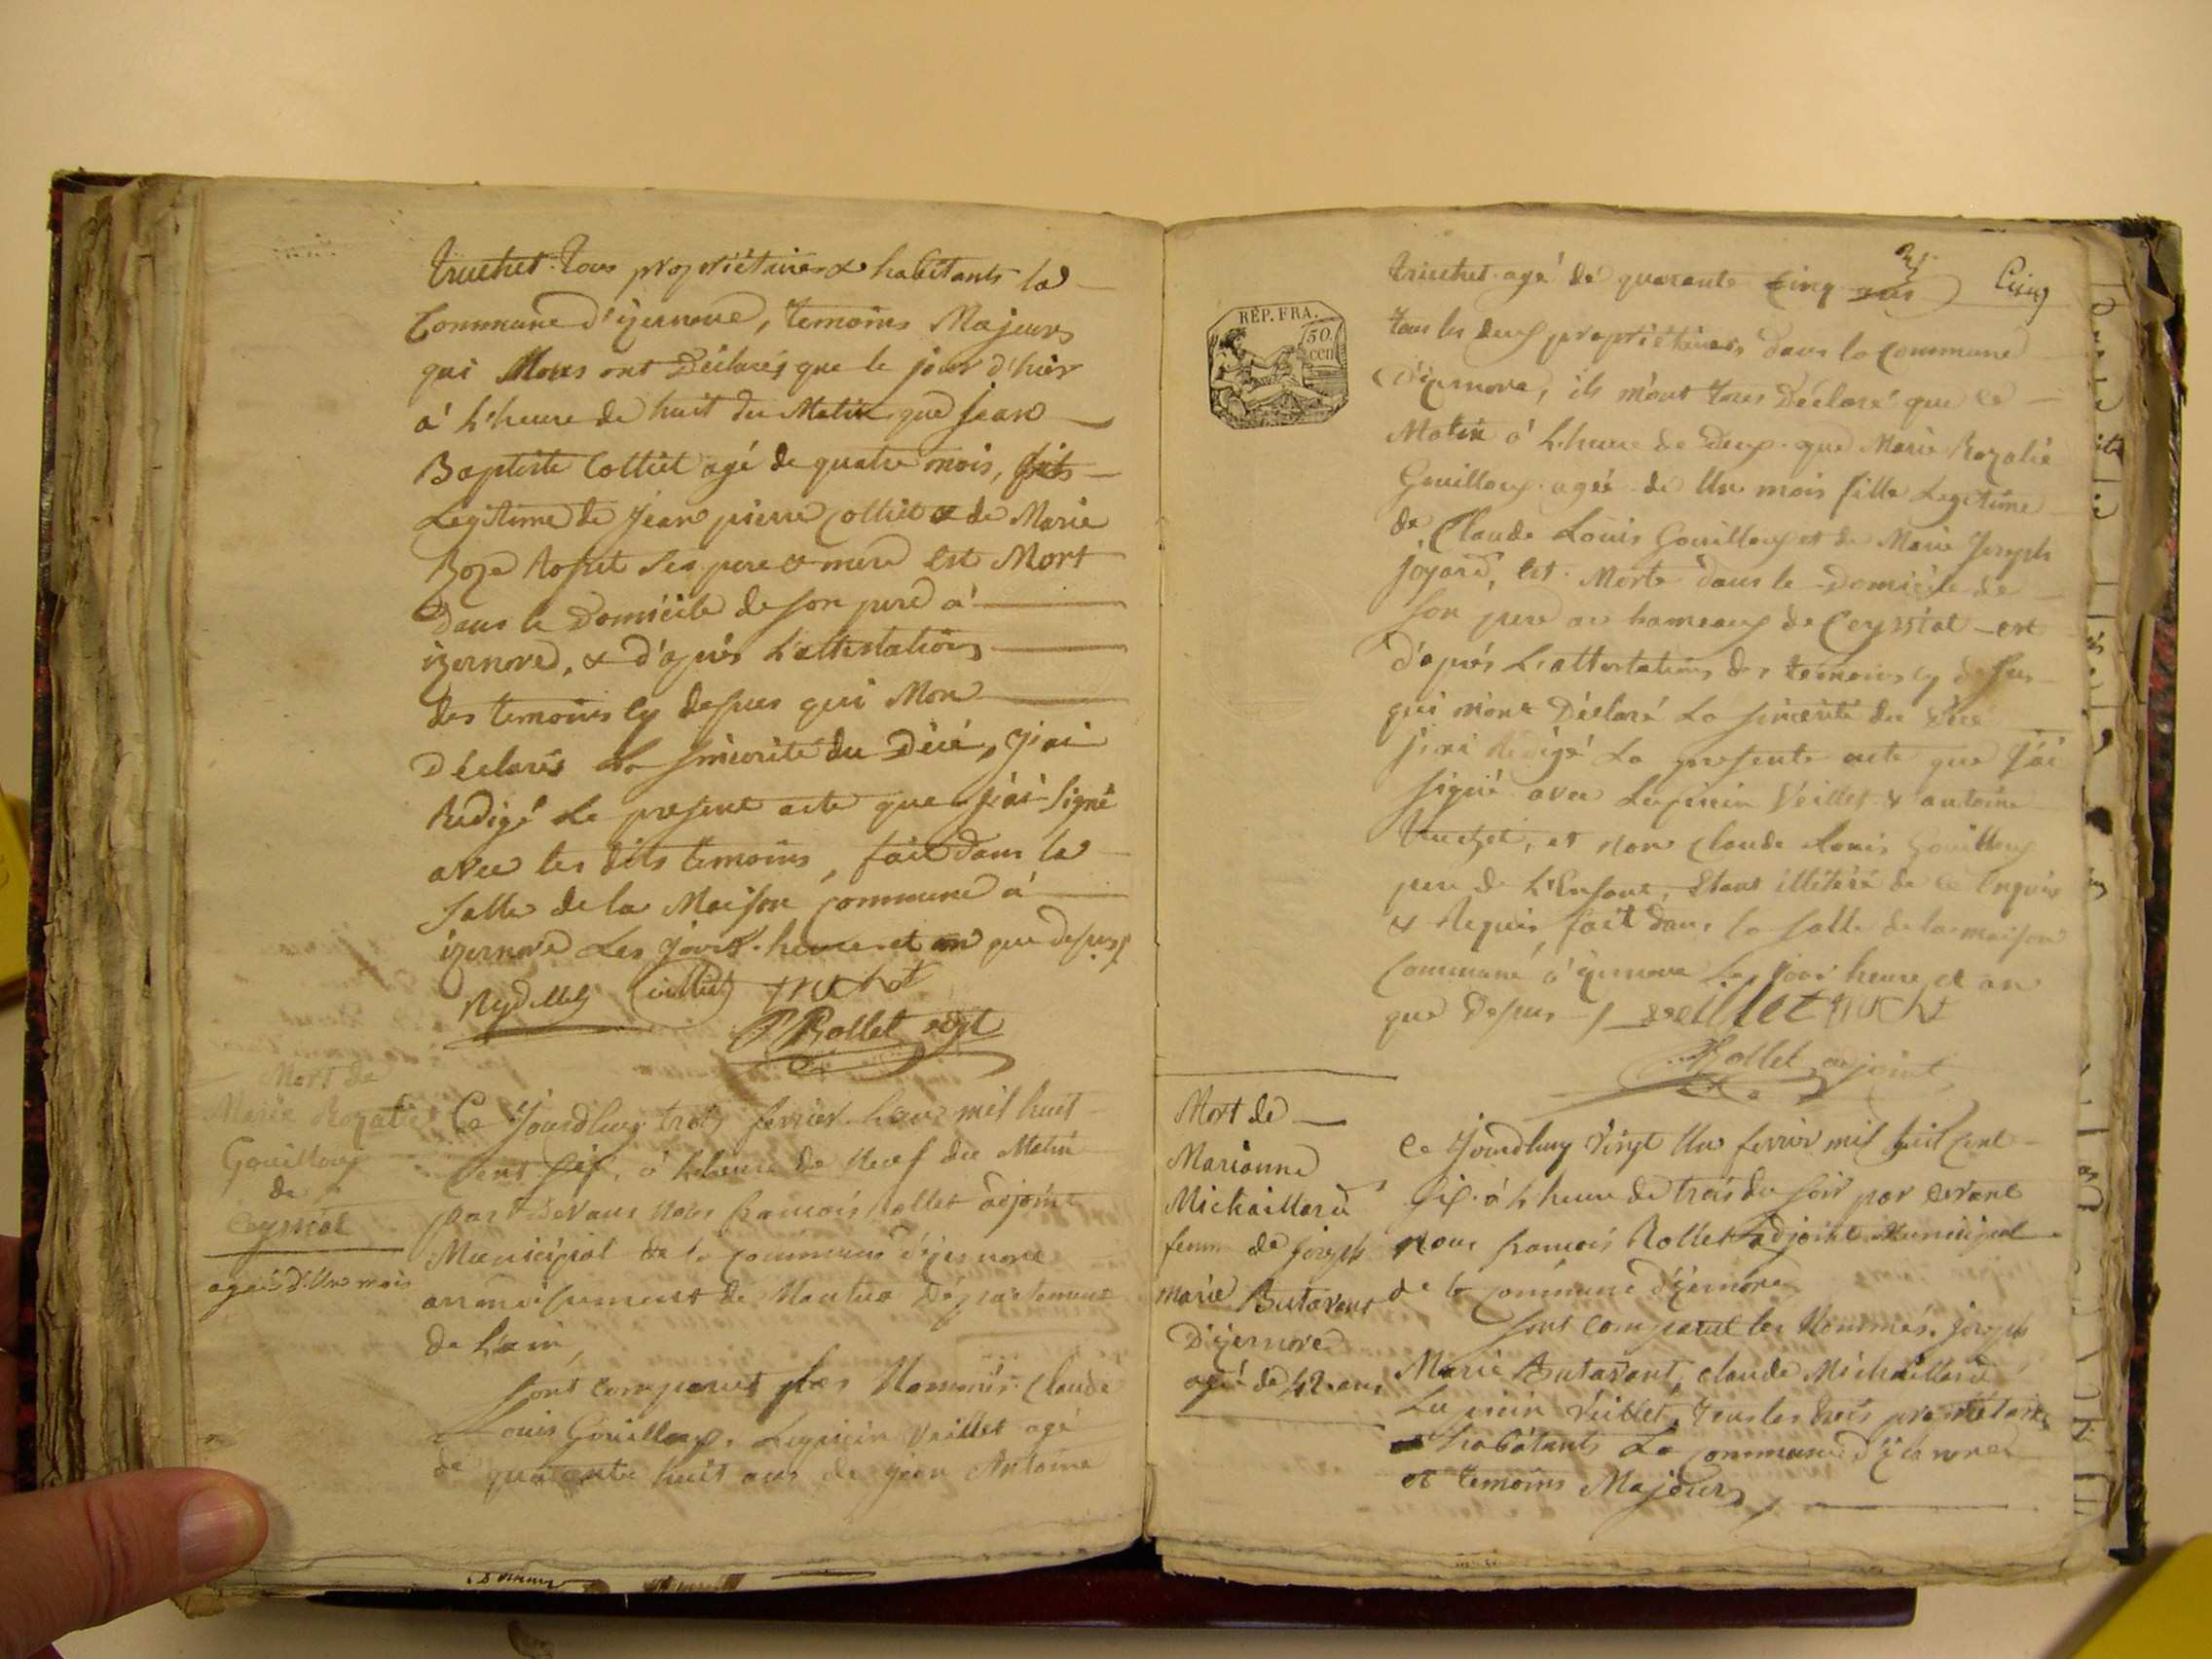 truchet tous propriétaires & habitants la
Commune d'izernore, temoins Majeurs
qui Nous ont Déclarés que le jour d'hier
a L'heure de huit du Matin que jean
Baptiste Collet agé de quatre mois, fils
Legitime de jean pierre Colliet & de Marie
Roze ses pere & mere est Mort
Dans le Domicile de son pere a
izernore, & d'après L'attestation
des temoins cy dessus qui Mon
Déclarés La sincerité du Décé, j'ai
Redigé Le present acte que j'ai signé
avec les dits temoins, fait dans la
salle de la Maison commune a
izernore Les jours heure et an que dessus
truchet
Rollet adjt
Mort de
Marie Rozalie
Gouilloux
de
Ceyssiat
ageé d'Un mois
Ce jourdhuy trois fevrier L'an mil huit
Cent six, a L'heure de Neuf du Matin
par Devant Nous francois Rollet adjoint
Municipal de la commune d'izernore
arrondissement de Nantua Département
de L'ain,
sont comparut les Nommés Claude
Louis Gouilloux, Lupicin Veillet agé
de quarante huit ans de jean Antoine
Cinq
REP. FRA.
50
cen
truchet agé de quarante Cinq ans
tous les deux propriétaires dans la Commune
D'izernore, ils m'ont tous Déclaré que le
Matin a L'heure de deux que Marie Rozalie
Gouilloux ageé de Un mois fille Legitime
de Claude Louis Gouilloux et de Marie Joseph
joyard, est Morte dans le Domicile de
son pere au hameaux de Ceyssiat et
d'après L'attestation des temoins cy dessus
qui m'ont Déclaré La sincerité du Décé
j'ai Redigé La presente acte que j'ai
signé avec Lupicin Veillet & antoine
truchet, et non Claude Louis Gouilloux
pere de L'Enfant, Etant illiteré de ce Enquis
& Requis fait dans la salle de la maison
Commune a izernore Les jour heure et an
que dessus veillet truchet
Rollet adjoint
Mort de
Marianne
Michaillard
femme de joseph
marie Butavant
D'izernore
agé de 42 ans
Ce jourdhuy Vingt Un fevrier mil huit Cent
six a L'heure de trois du soir par devant
Nous francois Rollet adjoint Municipal
de la commune d'izernore
sont comparut les Nommés joseph
Marie Butavant, claude Michaillard
Lupicin Veillet, tous les trois propriétaires
habitants La commune d'izernore
et temoins Majeurs